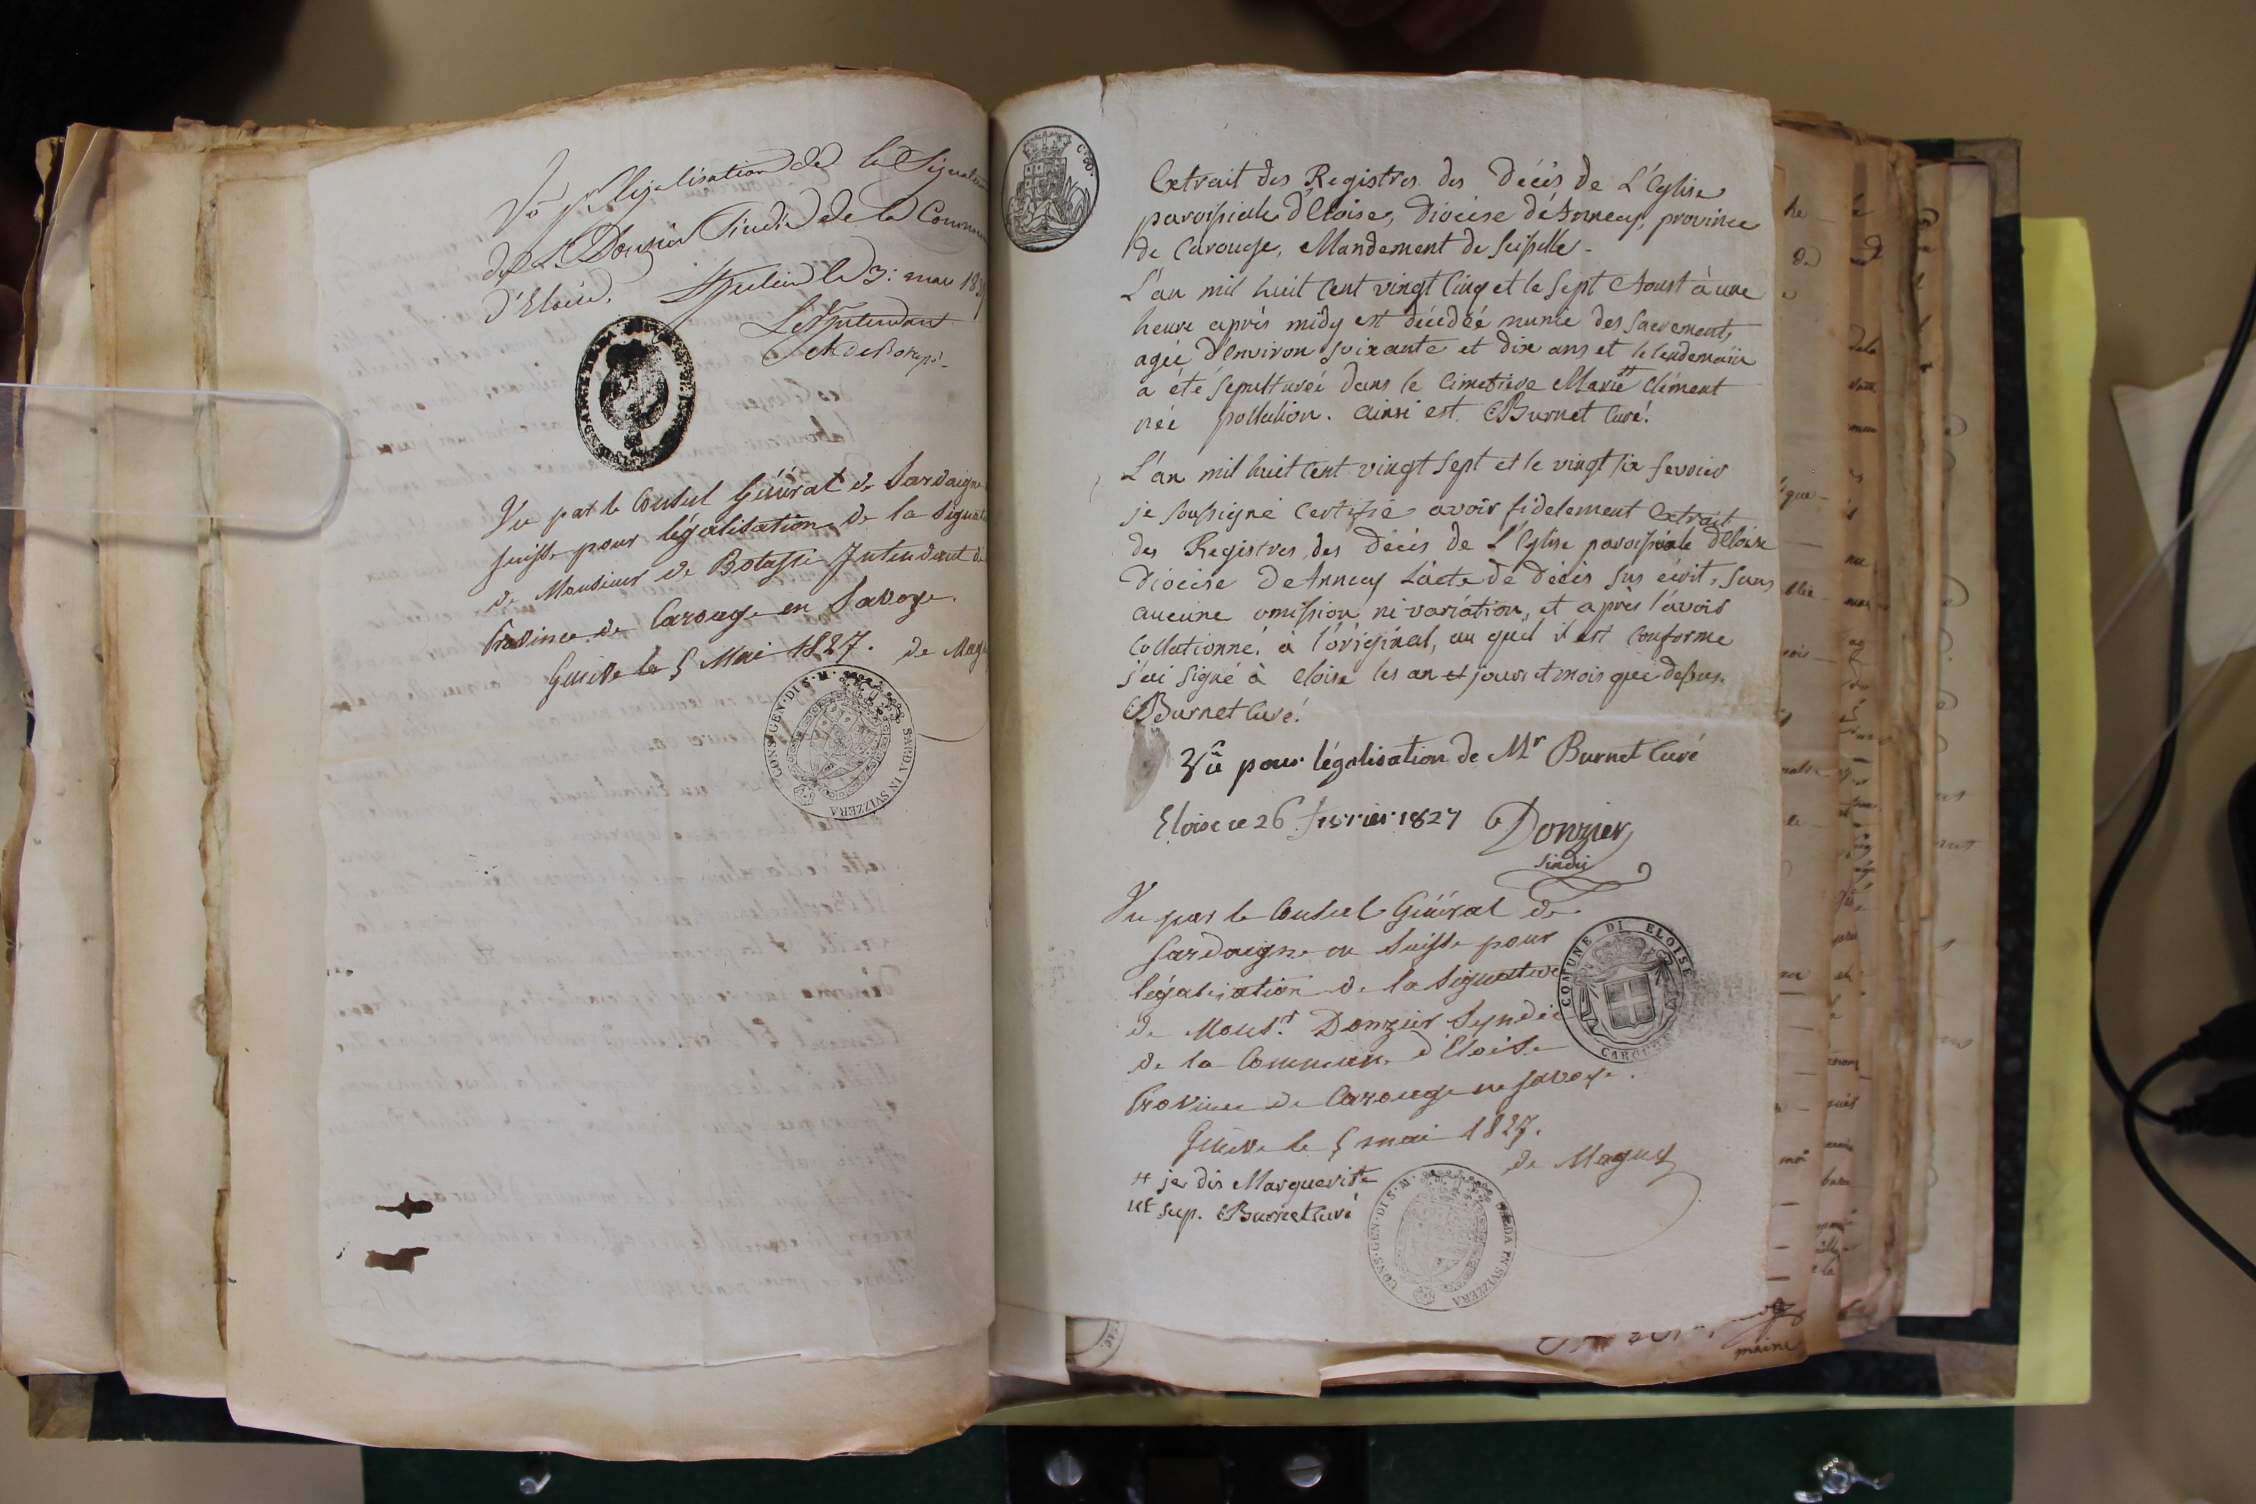 Vû pr légalisation de la Signature
de Sr Donzier Sindic de la Commune
d'Eloise. St Julien le 3: mai 1827
L'Intendant
Vu par le Consul Général de Sardaigne
Suisse pour légalisation de la Signat
de Monsieur de Botassi Intendant de
Province de Carouge en Savoye.
Genève le 5 Mai 1827. de Mag
CONS. GEN. DI S. M. SARDA IN SVIZZERA
C. 60.
Extrait des Registres des Décès de L'Eglise
paroissiale d'Eloise, Diocèse d'Annecy, province
de Carouge, Mandement de Seisselle -
L'an mil huit cent vingt cinq et le sept Aoust à une
heure après midy est décédéé munie des sacrements
agée d'environ soixante et dix ans et le lendemain
a été sepulturéé dans le cimetière Marie # Clément
néé pollution. ainsi est Burnet Curé.
L'an mil huit cent vingt sept et le vingt six fevrier
je soussigné Certifie avoir fidelement Extrait
des Registres des Décès de L'Eglise paroissiale d'Eloise
Diocèse De Annecy L'acte de décès sus écrit, sans
aucune omission ni variation, et après l'avoir
Collationné à l'original, au quel il est conforme
j'ai signé à Eloise les an et jour et mois que dessus.
Burnet Curé.
Vû pour légalisation de Mr Burnet Curé
Eloise ce 26 fevrier 1827 Donzier
Sindic
Vu par le Consul Général de
Sardaigne en Suisse pour
légalisation de la Signature
de Monsr Donzier Syndic
de la Commune d'Eloise
Province de Carouge en Savoye.
COMUNE DI ELOISE
CAROUGE
Genève le 5 mai 1827.
de Magny
# je dis Marguerite
ut sup. Burnet Curé
CONS. GEN. DI S. M. SARDA IN SVIZZERA
maire